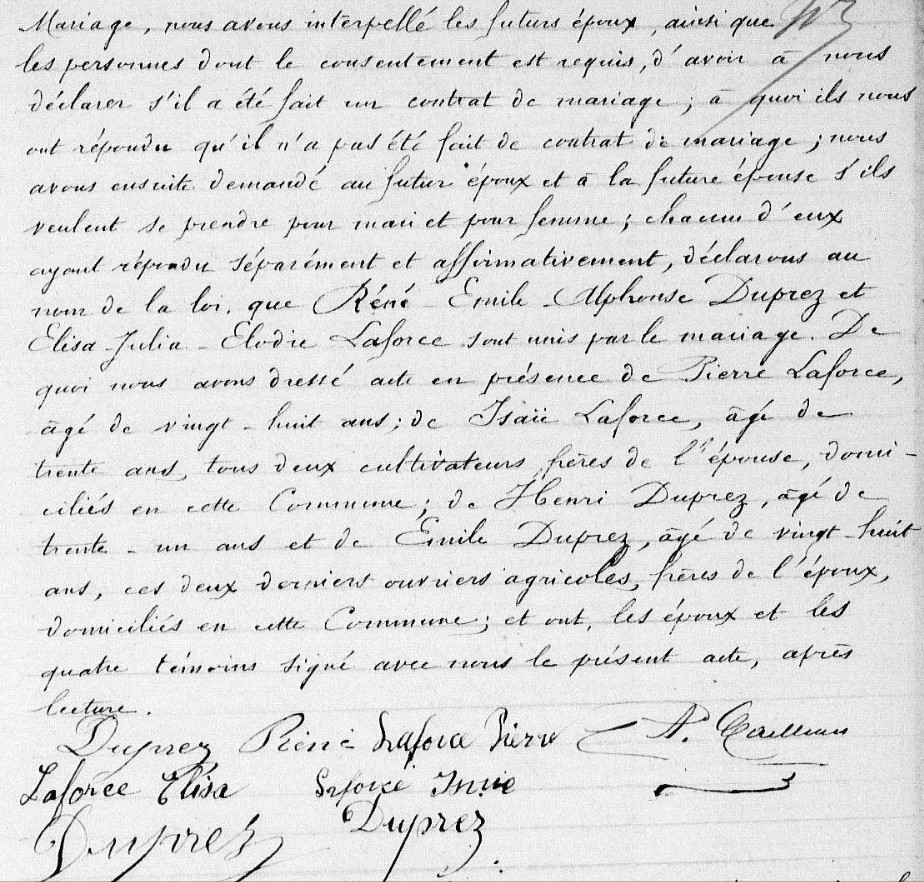 Mariage, nous avons interpellé les futurs époux, ainsi que
les personnes dont le consentement est requis, d'avoir à nous
déclarer s'il a été fait un contrat de mariage ; à quoi ils nous
ont répondu qu'il n'a pas été fait de contrat de mariage ; nous
avons ensuite demandé au futur époux et à la future épouse s'ils
veulent se prendre pour mari et pour femme ; chacun d'eux
ayant répondu séparément et affirmativement, déclarons au
nom de la loi, que Réné - Emile - Alphonse Duprez et
Elisa - Julia - Elodie Laforce sont unis par le mariage. De
quoi nous avons dressé acte en présence de Pierre Laforce,
âgé de vingt - huit ans ; de Isaïe Laforce, âgé de
trente ans, tous deux cultivateurs, frères de l'épouse, domi-
ciliés en cette Commune ; de Henri Duprez, âgé de
trente - un ans et de Emile Duprez, âgé de vingt - huit
ans, ces deux derniers ouvriers agricoles, frères de l'époux,
domiciliés en cette Commune ; et ont, les époux et les
quatre témoins signé avec nous le présent acte, après
lecture.
Duprez Réné Laforce Pierre A.
Laforce Elisa Laforce Isaïe
Duprez Duprez